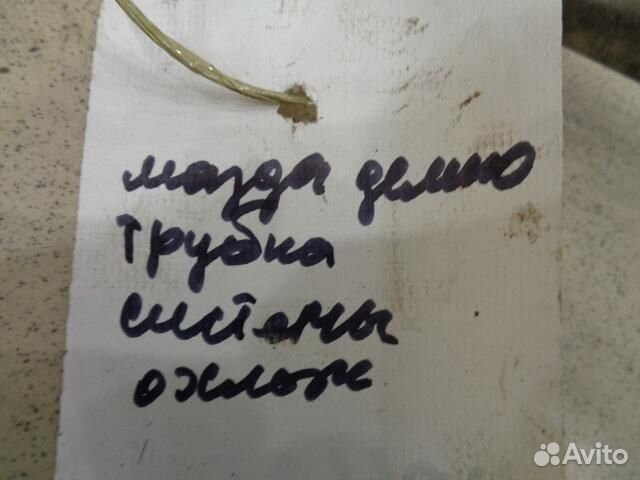 мазда демио
трубка
системы
охлож
Avito